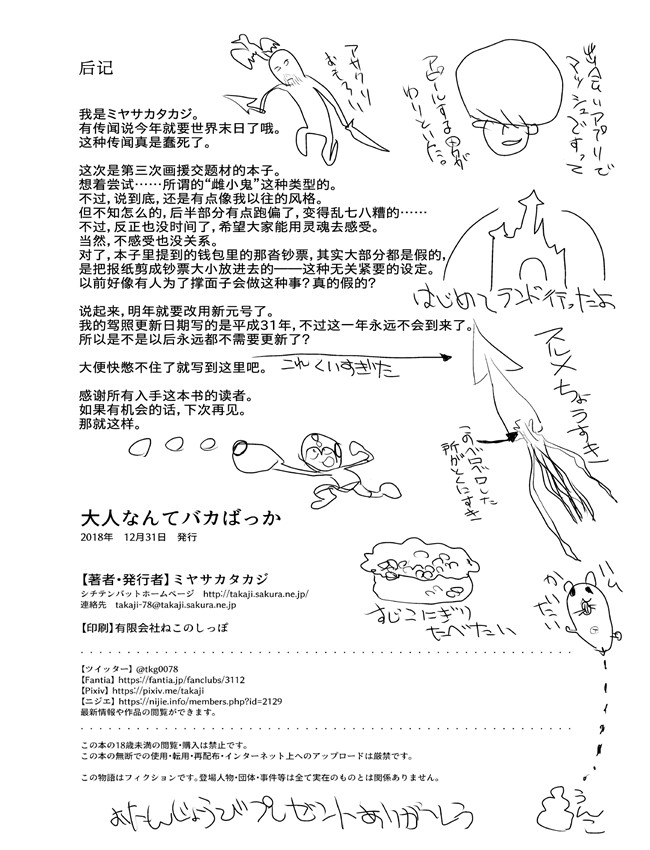 后记
我是ミヤサカタカジ。
有传闻说今年就要世界末日了哦。
这种传闻真是蠢死了。
这次是第三次画援交题材的本子。
想着尝试……所谓的“雌小鬼”这种类型的。
不过，说到底，还是有点像我以往的风格。
但不知怎么的，后半部分有点跑偏了，变得乱七八糟的……
不过，反正也没时间了，希望大家能用灵魂去感受。
当然，不感受也没关系。
对了，本子里提到的钱包里的那沓钞票，其实大部分都是假的，
是把报纸剪成钞票大小放进去的——这种无关紧要的设定。
以前好像有人为了撑面子会做这种事？真的假的？
说起来，明年就要改用新元号了。
我的驾照更新日期写的是平成31年，不过这一年永远不会到来了。
所以是不是以后永远都不需要更新了？
大便快憋不住了就写到这里吧。
これくいすぎた
感谢所有入手这本书的读者。
如果有机会的话，下次再见。
那就这样。
アサクリ
おもろい
出会いアプリで
マッシュですって
アピールする男が
わりといた。
はじめてランド行ったよ
スルメちょうすき
このベロベロした
所がとくにすき
すじこにぎり
たべたい
ハム
かいたい
うんこ
大人なんてバカばっか
2018年　12月31日　発行
【著者・発行者】ミヤサカタカジ
シチテンバットホームページ　http://takaji.sakura.ne.jp/
連絡先　takaji-78@takaji.sakura.ne.jp
【印刷】有限会社ねこのしっぽ
【ツイッター】@tkg0078
【Fantia】https://fantia.jp/fanclubs/3112
【Pixiv】https://pixiv.me/takaji
【ニジエ】https://nijie.info/members.php?id=2129
最新情報や作品の閲覧ができます。
この本の18歳未満の閲覧・購入は禁止です。
この本の無断での使用・転用・再配布・インターネット上へのアップロードは厳禁です。
この物語はフィクションです。登場人物・団体・事件等は全て実在のものとは関係ありません。
おたんじょうびプレゼントありがとう